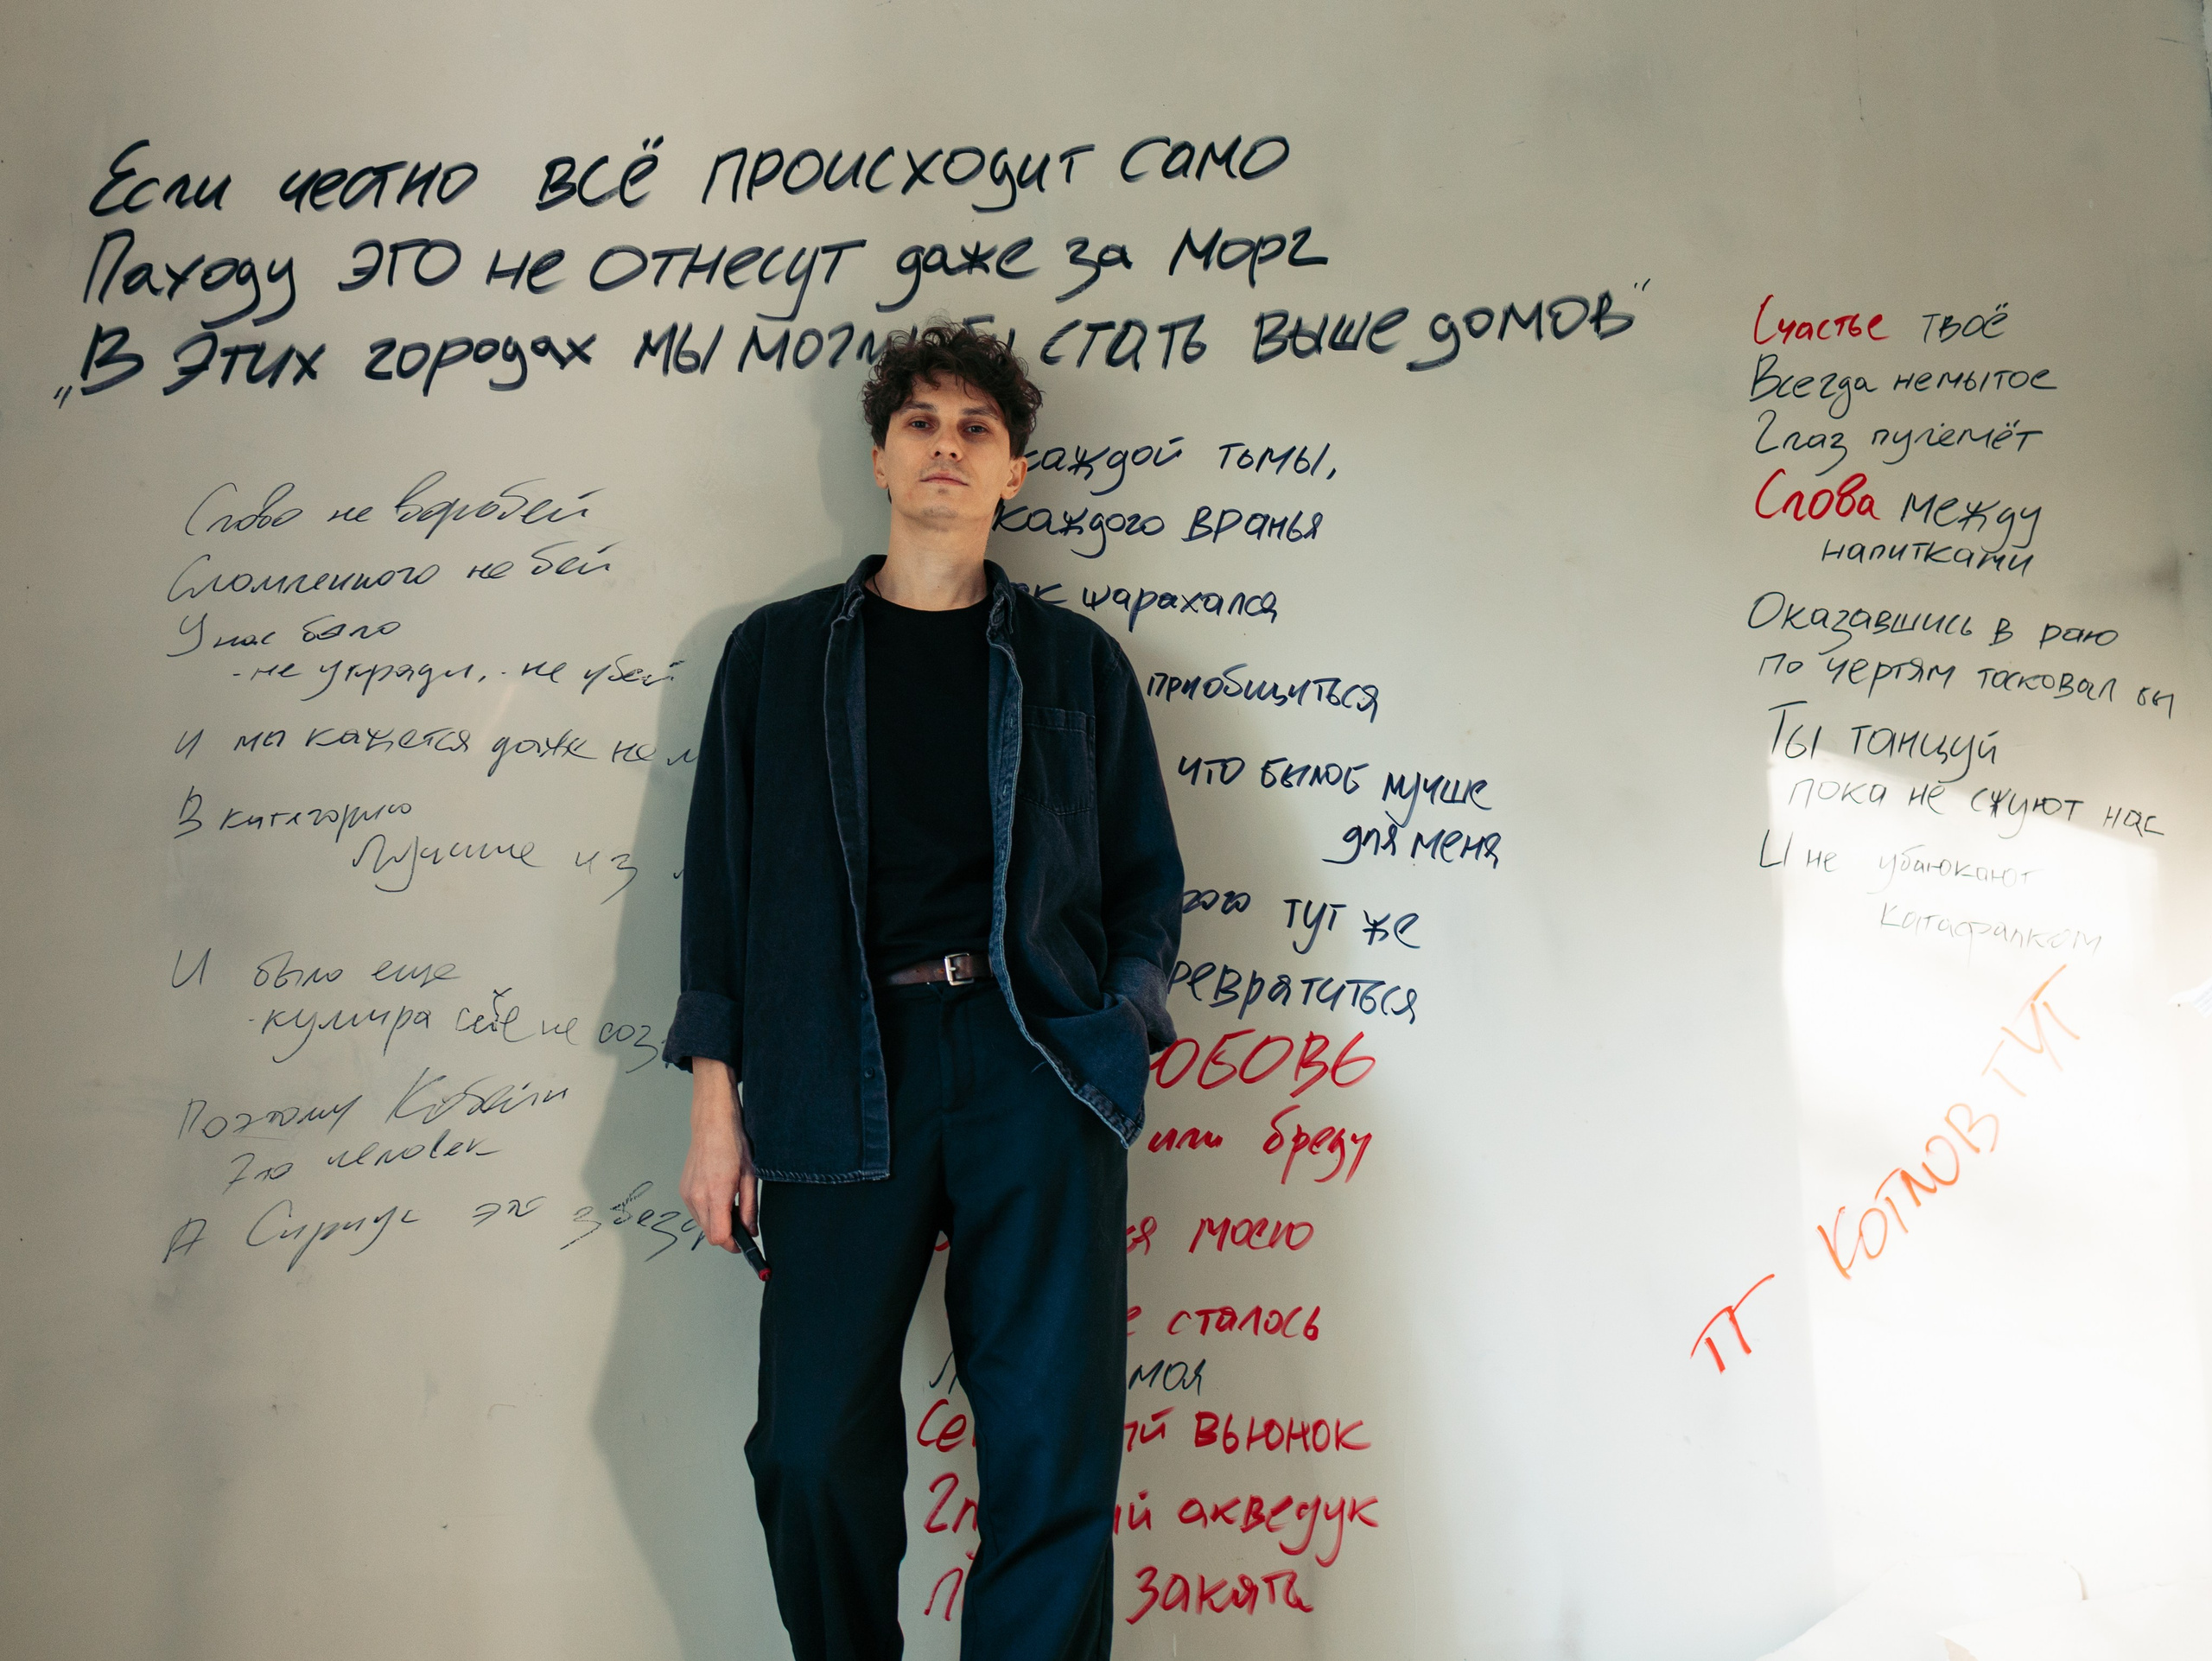 Если честно всё происходит само
Паходу это не отнесут даже за морг
„В этих городах мы могли бы стать выше домов"
Слово не воробей
Сломленного не бей
У нас было
-не укради, -не убей
и мы кажется даже не
В категорию
Лучшие из
И было еще
-кумира себе не соз
Поэтому Кобейн
это человек
А Сириус это звезд
каждой тьмы,
каждого вранья
шарахался
приобщиться
что былоб лучше
для меня
тут же
ревратиться
ЮБОВЬ
или бреду
мою
сталось
моя
вьюнок
акведук
закять
Счастье твоё
Всегда немытое
Глаз пулемёт
Слова между
напитками
Оказавшись в раю
по чертям тосковал бы
Ты танцуй
пока не сжуют нас
И не убаюкают
катафалком
ТГ КОТЛОВ ТУТ